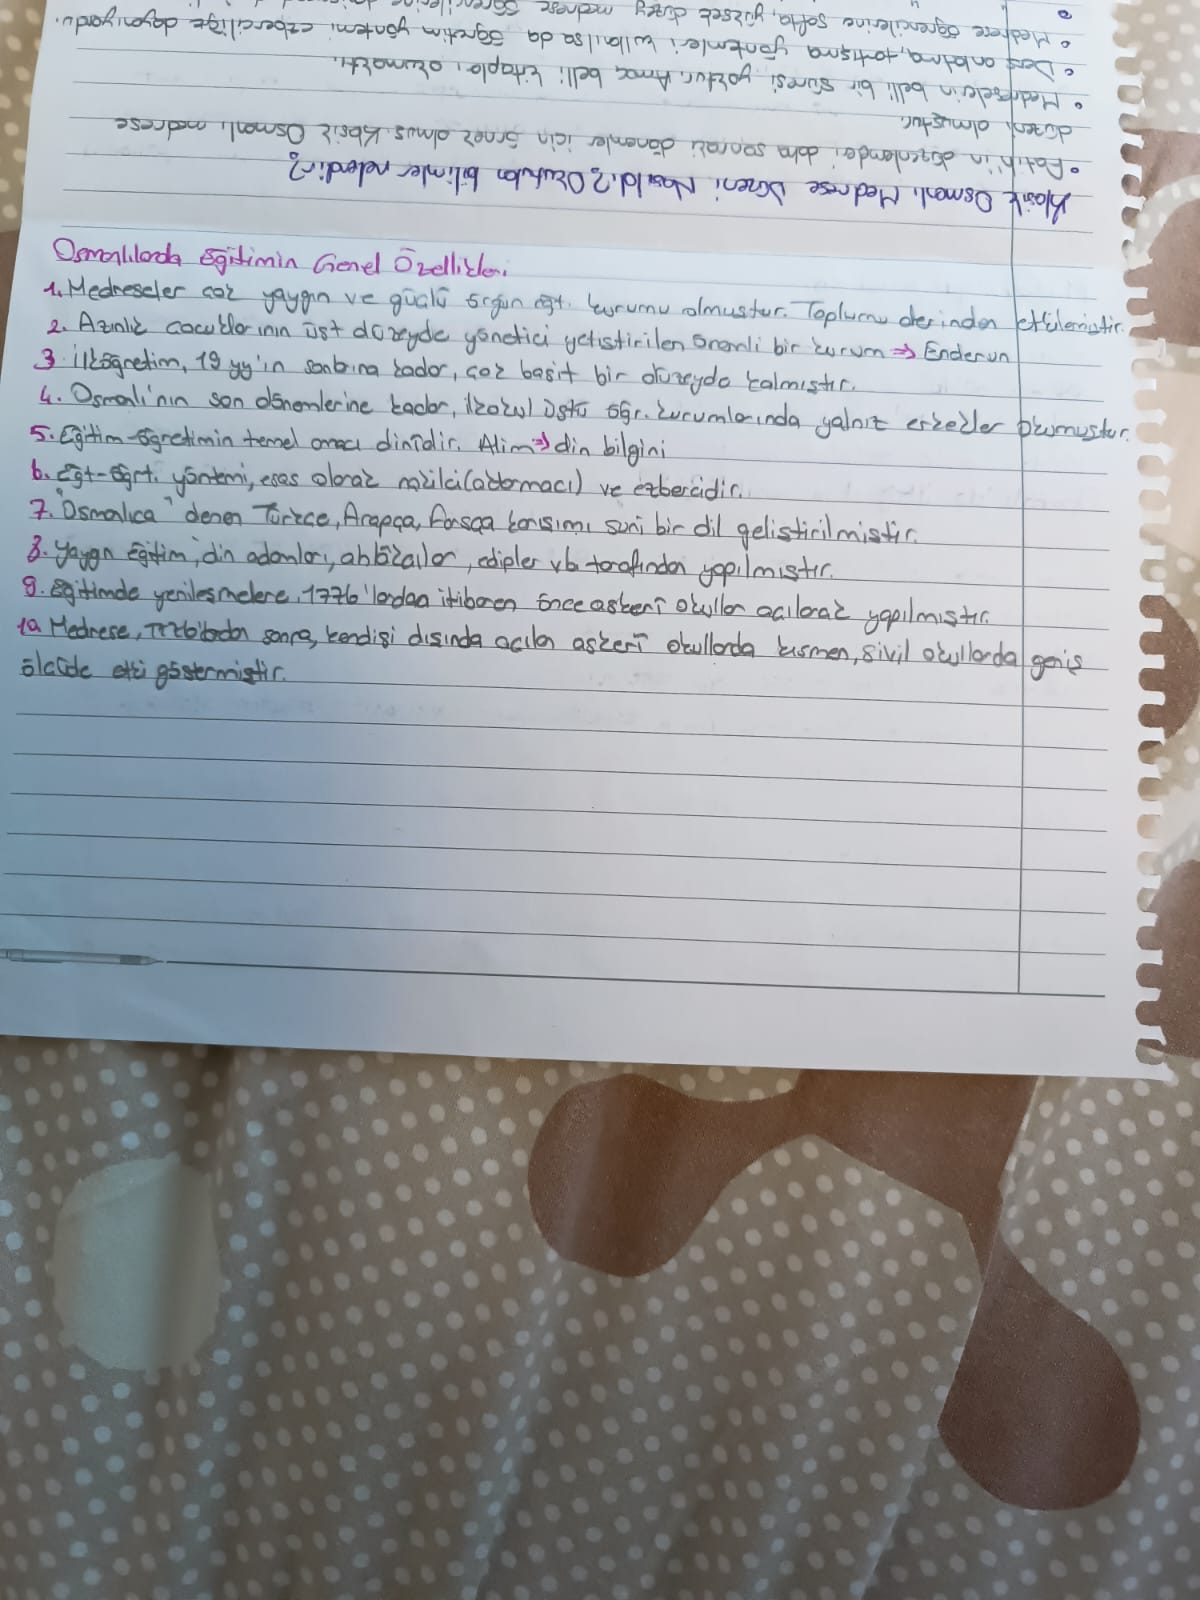 Osmanlılarda Eğitimin Genel Özellikleri
1. Medreseler çok yaygın ve güçlü örgün eğt. kurumu olmuştur. Toplumu derinden etkilemiştir.
2. Azınlık çocuklarının üst düzeyde yönetici yetiştirilen önemli bir kurum => Enderun
3. İlköğretim, 19 yy'ın sonlarına kadar, çok basit bir düzeyde kalmıştır.
4. Osmanlı'nın son dönemlerine kadar, ilkokul üstü öğr. kurumlarında yalnız erkekler okumuştur.
5. Eğitim-öğretimin temel amacı dinîdir. Alim => din bilgini
6. Eğt-öğrt. yöntemi, esas olarak nakilci (aktarmacı) ve ezbercidir.
7. "Osmalıca" denen Türkçe, Arapça, Farsça karışımı suni bir dil geliştirilmiştir.
8. Yaygın eğitim, din adamları, ahlâkçılar, edipler vb. tarafından yapılmıştır.
9. Eğitimde yenileşmelere, 1776'lardan itibaren önce askerî okullar açılarak yapılmıştır.
10. Medrese, sonra, kendisi dışında açılan askerî okullarda kısmen, sivil okullarda geniş
ölçüde etki göstermiştir.
Klasik Osmanlı Medrese Düzeni Nasıldı? Okutulan bilimler nelerdir?
• Fatih'in düzenlemesi daha sonraki dönemler için örnek olmuş. Klasik Osmanlı medrese
düzeni olmuştur.
• Medreselerin belli bir süresi yoktur. Ama belli kitaplar okumaktı.
• Ders anlatma, tartışma yöntemleri kullanılsa da öğretim yöntemi ezberciliğe dayanıyordu.
• Medrese öğrencilerine softa, yüksek düzey medrese öğrencilerine